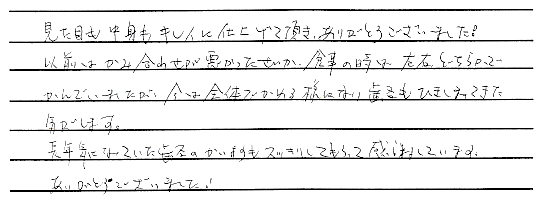 見た目も中身もキレイに仕上げて頂き、ありがとうございました!
以前はかみ合わせが悪かったせいか、食事の時は左右どちらかで
かんでいましたが、今は全体でかめる様になり歯茎もひきしまってきた
気がします。
長年気になっていた歯茎の もスッキリしてもらって感謝しています。
ありがとうございました!